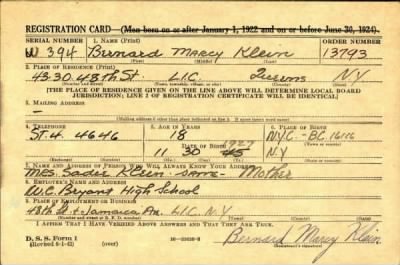 REGISTRATION CARD—(Men born on or after January 1, 1922 and on or before June 30, 1924)
SERIAL NUMBER 1. NAME (Print) ORDER NUMBER
W 394 Bernard Marcy Klein 13793
(First) (Middle) (Last)
2. PLACE OF RESIDENCE (Print)
43-30 48th St. L.I.C. Queens N.Y.
(Number and street) (Town, township, village, or city) (County) (State)
[THE PLACE OF RESIDENCE GIVEN ON THE LINE ABOVE WILL DETERMINE LOCAL BOARD
JURISDICTION; LINE 2 OF REGISTRATION CERTIFICATE WILL BE IDENTICAL]
3. MAILING ADDRESS
—
(Mailing address if other than place indicated on line 2. If same insert word same)
4. TELEPHONE 5. AGE IN YEARS 6. PLACE OF BIRTH
ST. 4. 4646 18 N.Y.C. - BC 16116
DATE OF BIRTH (Town or county)
11 30 N.Y.
(Exchange) (Number) (Mo.) (Day) (Yr.) (State or country)
7. NAME AND ADDRESS OF PERSON WHO WILL ALWAYS KNOW YOUR ADDRESS
Mrs. Sadie Klein - same - Mother
8. EMPLOYER'S NAME AND ADDRESS
W.C. Bryant High School
9. PLACE OF EMPLOYMENT OR BUSINESS
48th St & Jamaica Av. L.I.C. N.Y.
(Number and street or R. F. D. number) (Town) (County) (State)
I AFFIRM THAT I HAVE VERIFIED ABOVE ANSWERS AND THAT THEY ARE TRUE.
D. S. S. Form 1
(Revised 6-1-42) (over) Bernard Marcy Klein